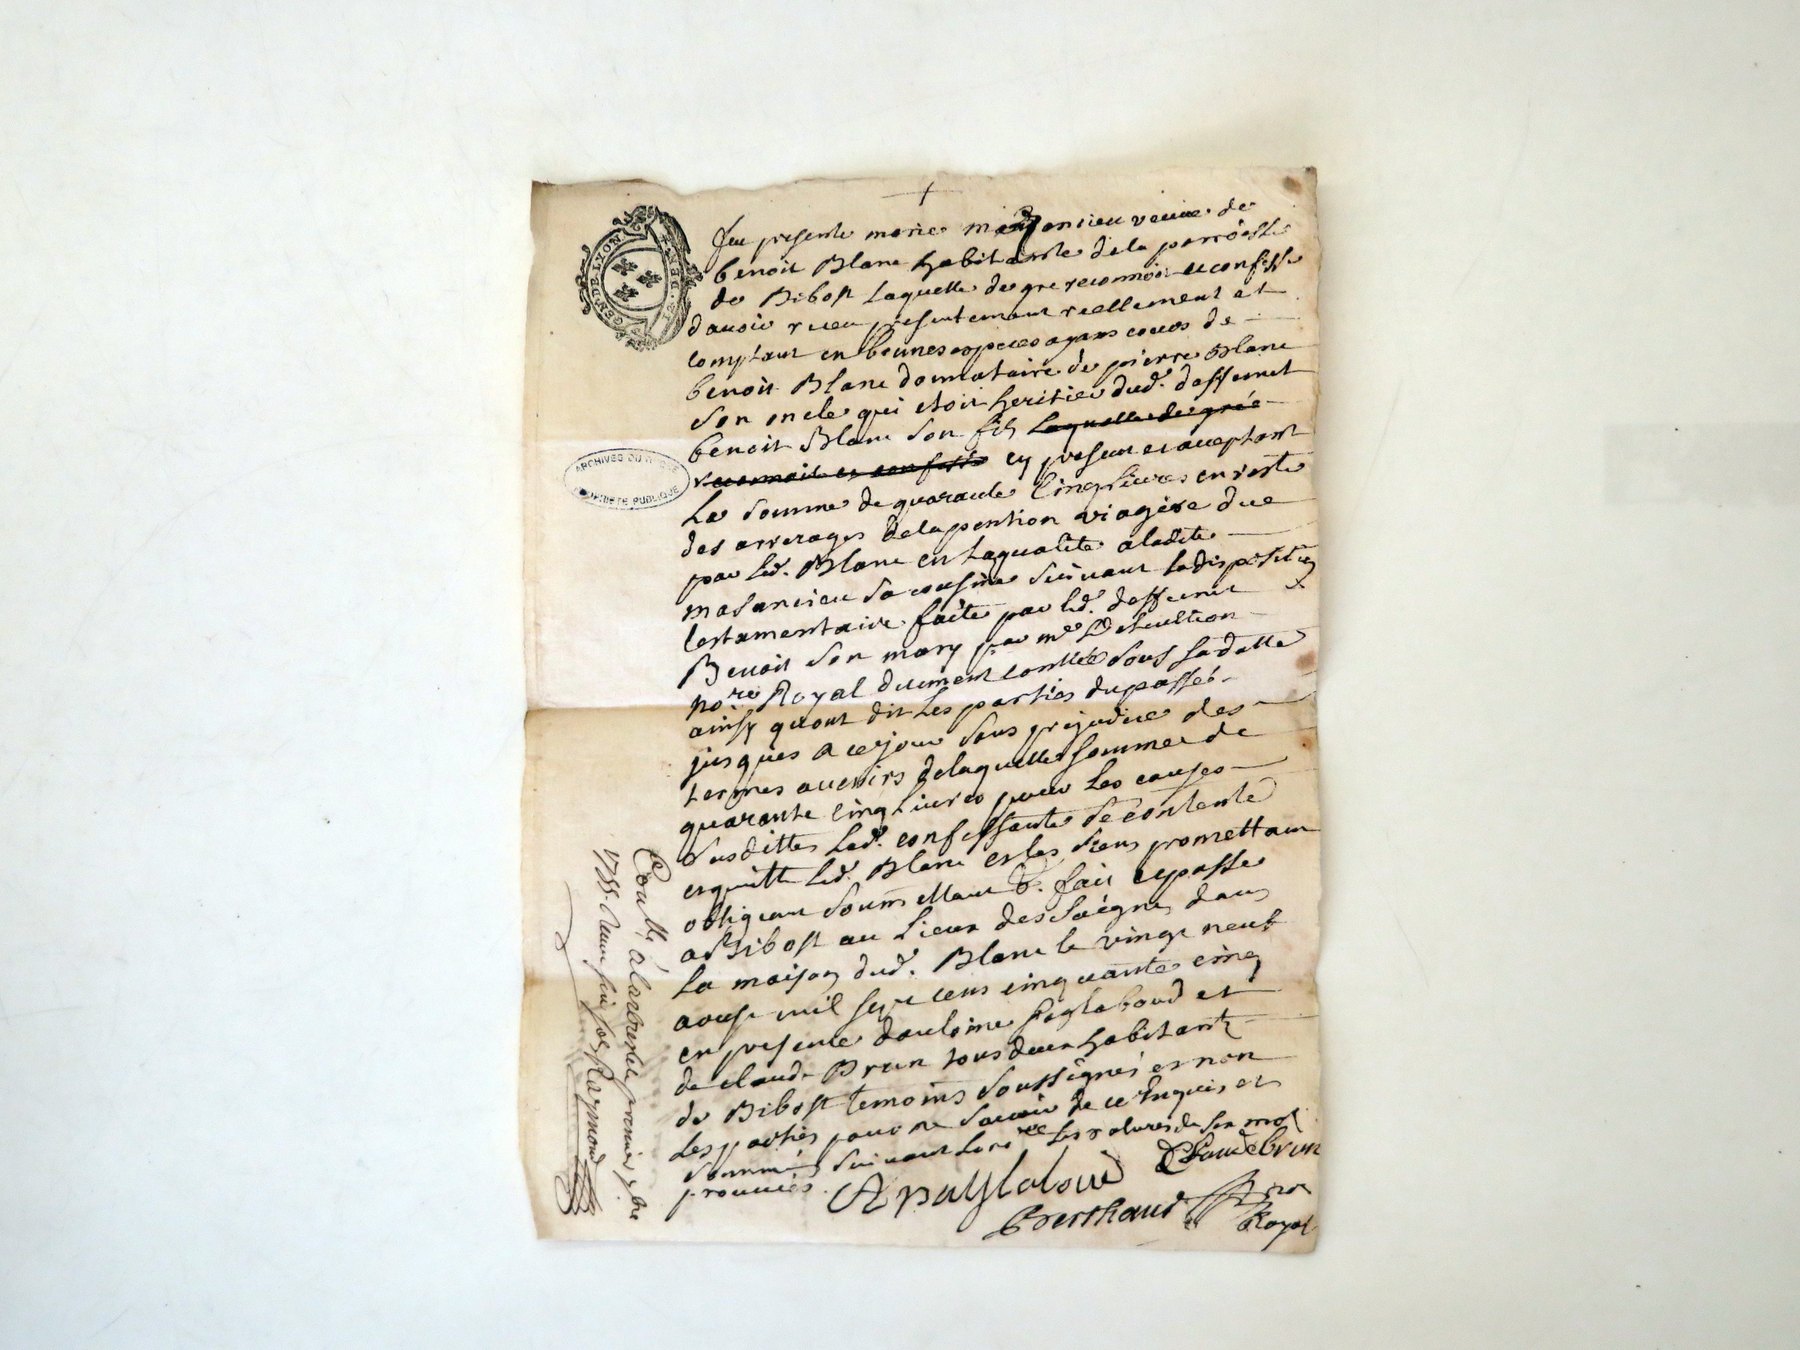 GEN. DE LYON
ARCHIVES DU RHONE
PROPRIETE PUBLIQUE
feu presente marie veuve de
benoit Blanc habitante de la parroesse
de Bibost Laquelle de gre reconnoit et confesse
davoir receu presentement reellement et
comptant en bonnes especes ayans cours de
benoit Blanc donnataire de pierre Blanc
son oncle qui etoit heritier dud. deffunct
benoit Blanc son fils Laquelle de grée
reconnoit et confesse cy present et acceptant
La somme de quarante Cinq livres en reste
des arrerages de la pention viagere due
par led. Blanc en la qualité a ladite
masancieu sa cousine suivant la disposition
testamentaire faite par led. deffunct
Benoit son mary par me
nore Royal duement conllée sous sa datte
ainsy quont dit Les parties du passé
jusques a ce jour sans prejudice des
termes avenirs de laquelle somme de
quarante cinq Livres pour les causes
susdittes Lad. confessante se contente
et quitte led. Blanc et les siens promettant
obligeant soumettant &. fait et passé
a Bibost au Lieux des Saignes dans
La maison dud. Blanc le vingt neuf
aoust mil sept cens cinquante cinq
en presence dantoine et
de claude Brun tous deux habitants
de Bibost temoins soussignés et non
Les parties pour ne savoir de ce Enquis et
sommés suivant Lord.nce Les ratures de sen mot
prouvées.
Claude brun
Berthaud
nore
Royal
Conllé, à larbresle premier 7bre
1755. Reçu six sols Raymond